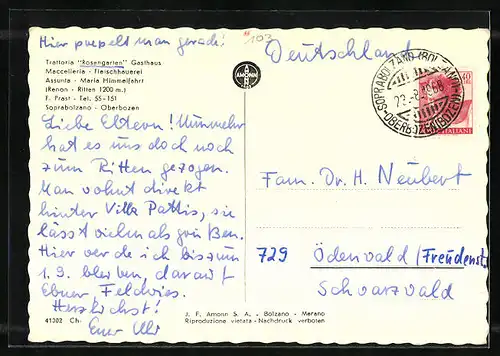 Hier pupelt man gerade!
103
Trattoria "Rosengarten" Gasthaus
Macelleria - Fleischhauerei
Assunta - Maria Himmelfahrt
(Renon - Ritten 1200 m.)
F. Prast - Tel. 55-151
Soprabolzano - Oberbozen
Liebe Eltern! Nunmehr
hat es uns doch noch
zum Ritten gezogen.
Man wohnt direkt
hinter Villa Pattis, sie
lässt vielmals grüßen.
Hier werde ich bis zum
1.9. bleiben, darauf
Feldwies.
Herzlichst!
Euer
41302 Ch-
AMONN
J. F. Amonn S. A. - Bolzano - Merano
Riproduzione vietata - Nachdruck verboten
Deutschland
SOPRABOLZANO (BOLZANO)
OBERBOZEN (BOZEN)
40
ITALIANI
Fam. Dr. H. Neubert
729 Ödenwald (Freudenst.
Schwarzwald